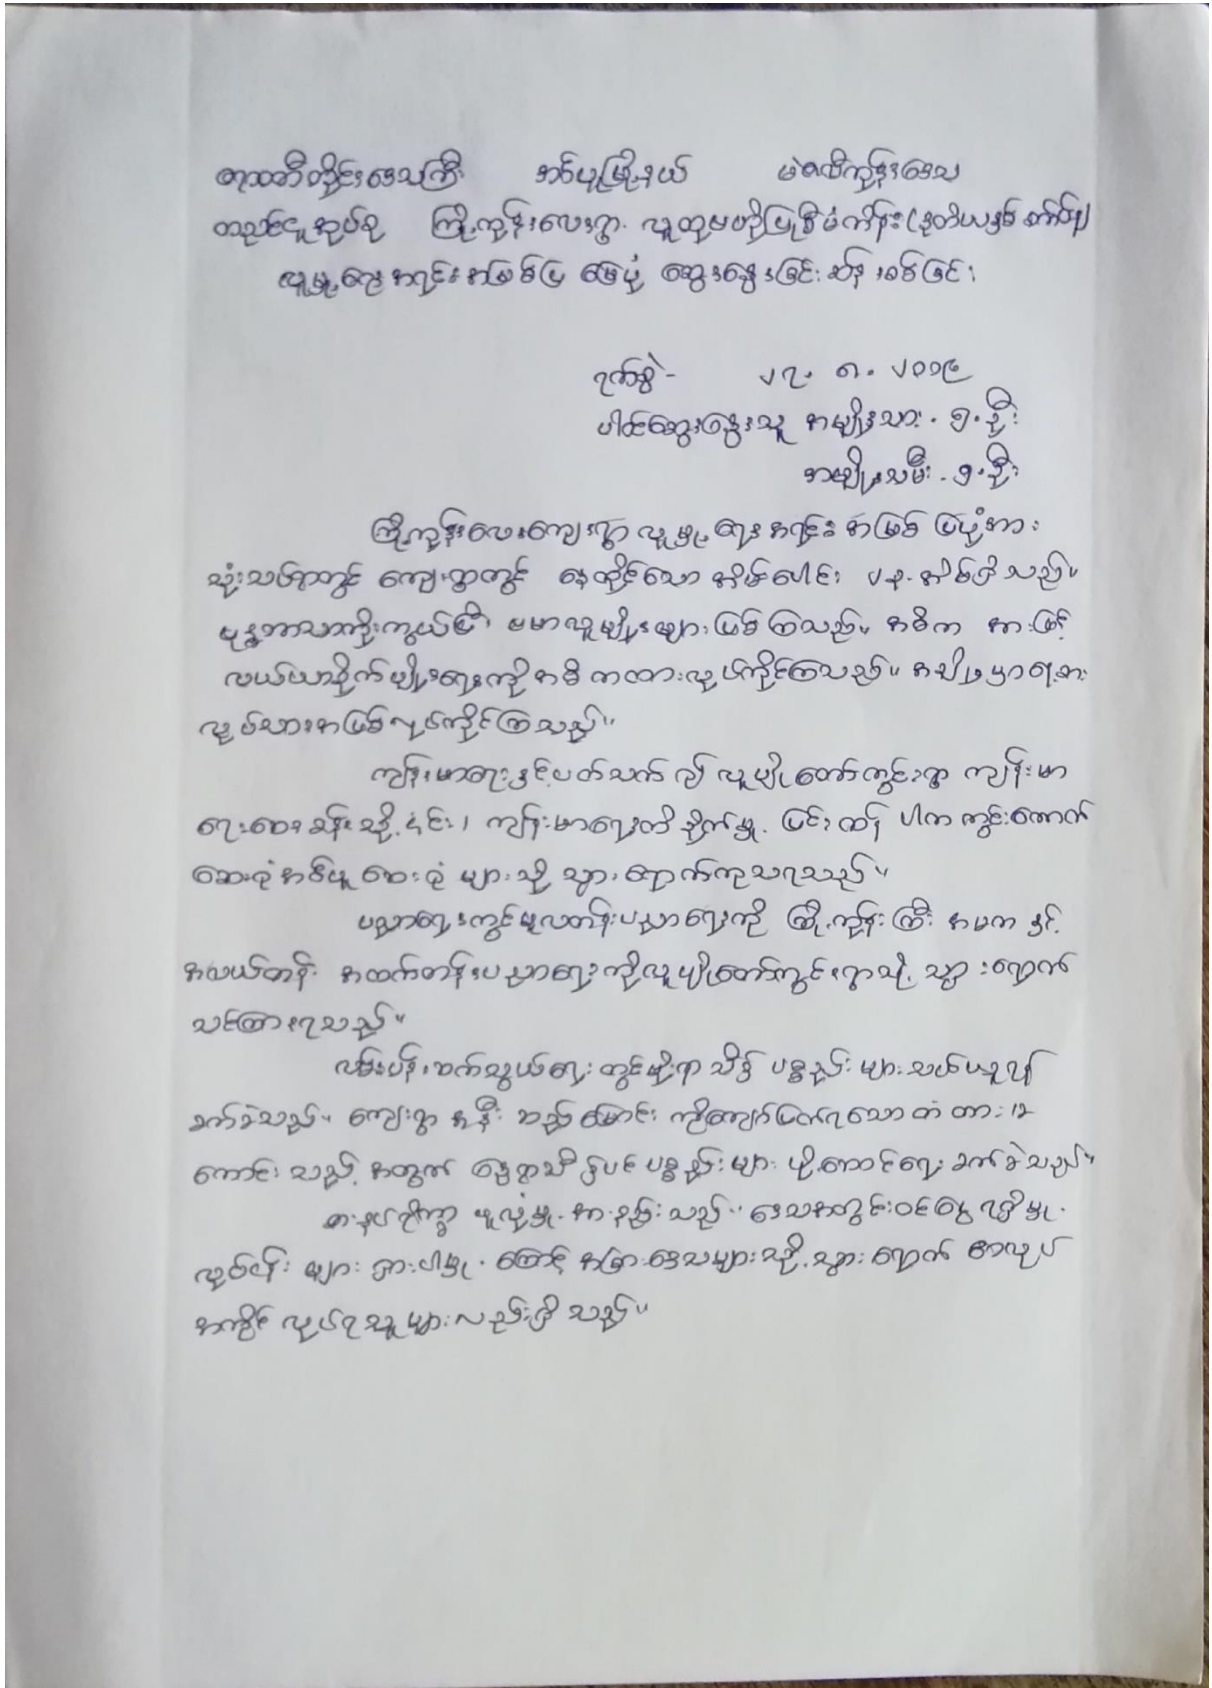 ဧရာဝတီတိုင်းဒေသကြီး အင်ပူမြို့နယ် မဲဇလီကုန်းဒေသ
တညင်ငူအုပ်စု ကြို့ကုန်းလေးရွာ လူထုဗဟိုပြုစီမံကိန်း (ဒုတိယနှစ်
လူမှုရေးအရင်းအမြစ်ပြ မြေပုံ ဆွေးနွေးခြင်း ဆန်းစစ်ခြင်း
ရက်စွဲ - ၂၇.၈.၂၀၁၉
ပါဝင်ဆွေးနွေးသူ အမျိုးသား - ၅ - ဦး
အမျိုးသမီး - ၅ - ဦး
ကြို့ကုန်းလေးကျေးရွာ လူမှုရေးအရင်းအမြစ်ပြပုံအား
သုံးသပ်ရာတွင် ကျေးရွာတွင် နေထိုင်သော အိမ်ပေါင်း အိမ်ရှိသည်။
ဗုဒ္ဓဘာသာကိုးကွယ်ပြီး ဗမာလူမျိုးများဖြစ်ကြသည်။ အဓိက အားဖြင့်
လယ်ယာစိုက်ပျိုးရေးကို အဓိကထားလုပ်ကိုင်ကြသည်။ အချို့မှာရေ
လုပ်သားအဖြစ်လုပ်ကိုင်ကြသည်။
ကျန်းမာရေးနှင့်ပတ်သက်၍ လူပျိုတော်ကွင်းရွာ ကျန်းမာ
ရေးဆေးခန်းသို့၎င်း၊ ကျန်းမာရေးထိခိုက်မှု ပြင်းထန်ပါက ကွင်းကောက်
ဆေးရုံ အင်ပူဆေးရုံများသို့ သွားရောက်ကုသရသည်။
ပညာရေးတွင်မူလတန်းပညာရေးကို ကြို့ကုန်းကြီး အမက နှင့်
အလယ်တန်း အထက်တန်းပညာရေးကိုလူပျိုတော်ကွင်းရွာသို့ သွားရောက်
သင်ကြားရသည်။
လမ်းပန်းဆက်သွယ်ရေးတွင်မိုးရာသီ၌ ပစ္စည်းများသယ်ယူရန်
ခက်ခဲသည်။ ကျေးရွာအနီး မြောင်း ကိုကျော်ဖြတ်ရသော တံတား
ကောင်းသည့်အတွက် နွေရာသီ၌ပင် ပစ္စည်းများ ပို့ဆောင်ရေး ခက်ခဲသည်။
စားနပ်ရိက္ခာ ဖူလုံမှု အားနည်းသည်။ ဒေသအတွင်းဝင်ငွေရရှိမှု
လုပ်ငန်းများ ရှားပါးမှုကြောင့် အခြားဒေသများသို့သွားရောက်
အကိုင်လုပ်ရသူများလည်းရှိသည်။